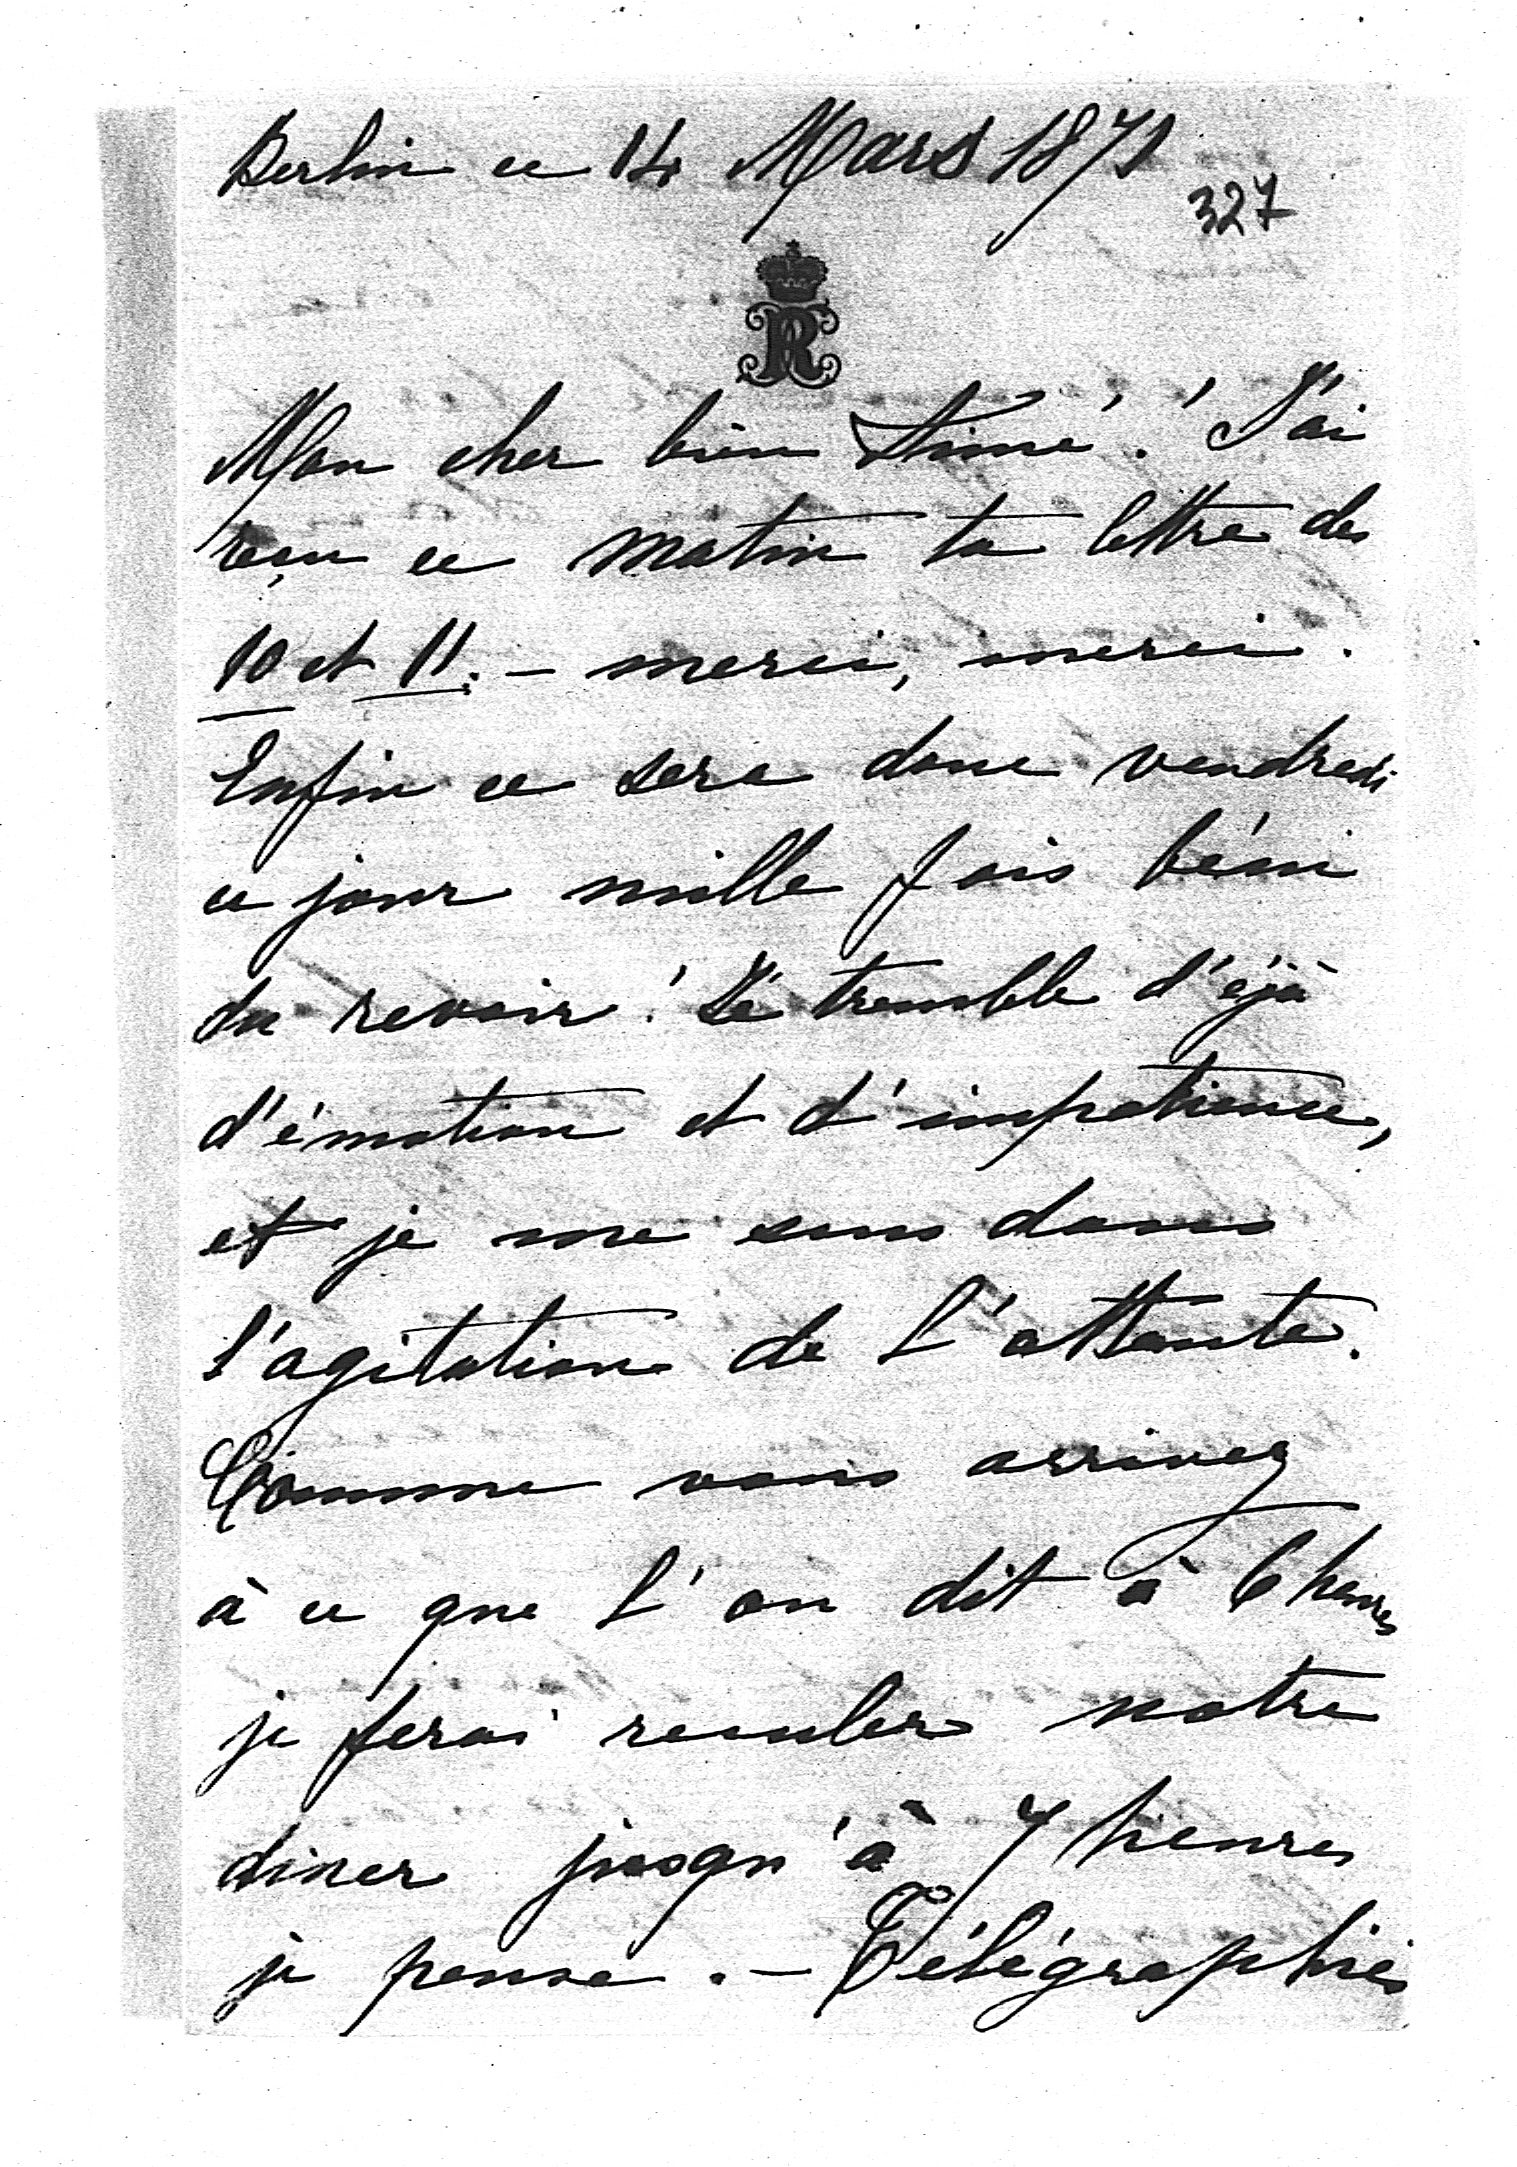 Berlin ce 14 Mars 1871
327
R
Mon cher bien Aimé! J'ai
reçu ce matin ta lettre des
10 et 11. – merci, merci.
Enfin ce sera donc vendredi
ce jour mille fois béni
du revoir! Je tremble d'éjà
d'émotion et d'impatience,
et je me sens dans
l'agitation de l'attente.
Comme vous arrivez
à ce que l'on dit à 6 heures
je ferai reculer notre
diner jusqu'à 7 heures
je pense. – Télégraphies